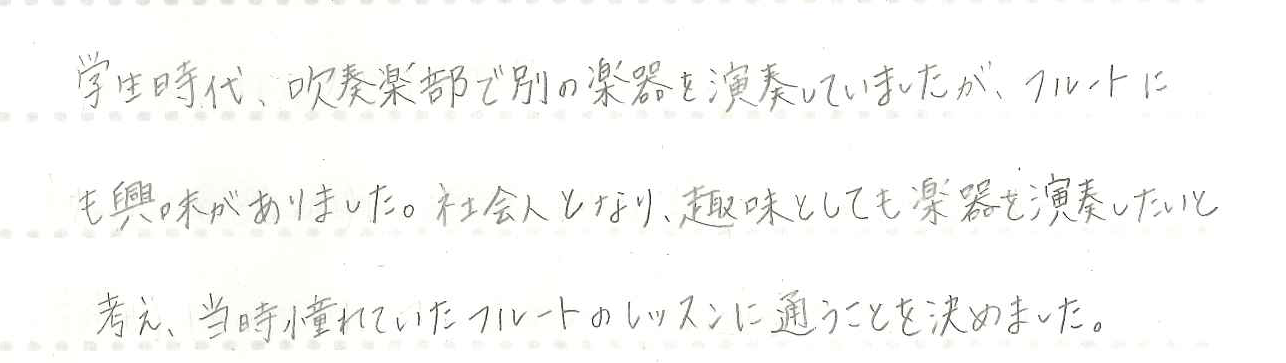 学生時代、吹奏楽部で別の楽器を演奏していましたが、フルートに
も興味がありました。社会人となり、趣味としても楽器を演奏したいと
考え、当時憧れていたフルートのレッスンに通うことを決めました。